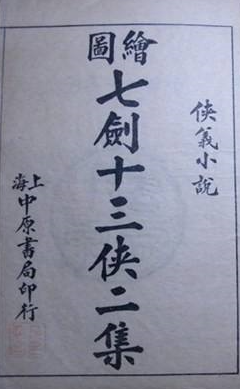 俠義小說
繪圖
七劍十三俠二集
上海
中原書局印行